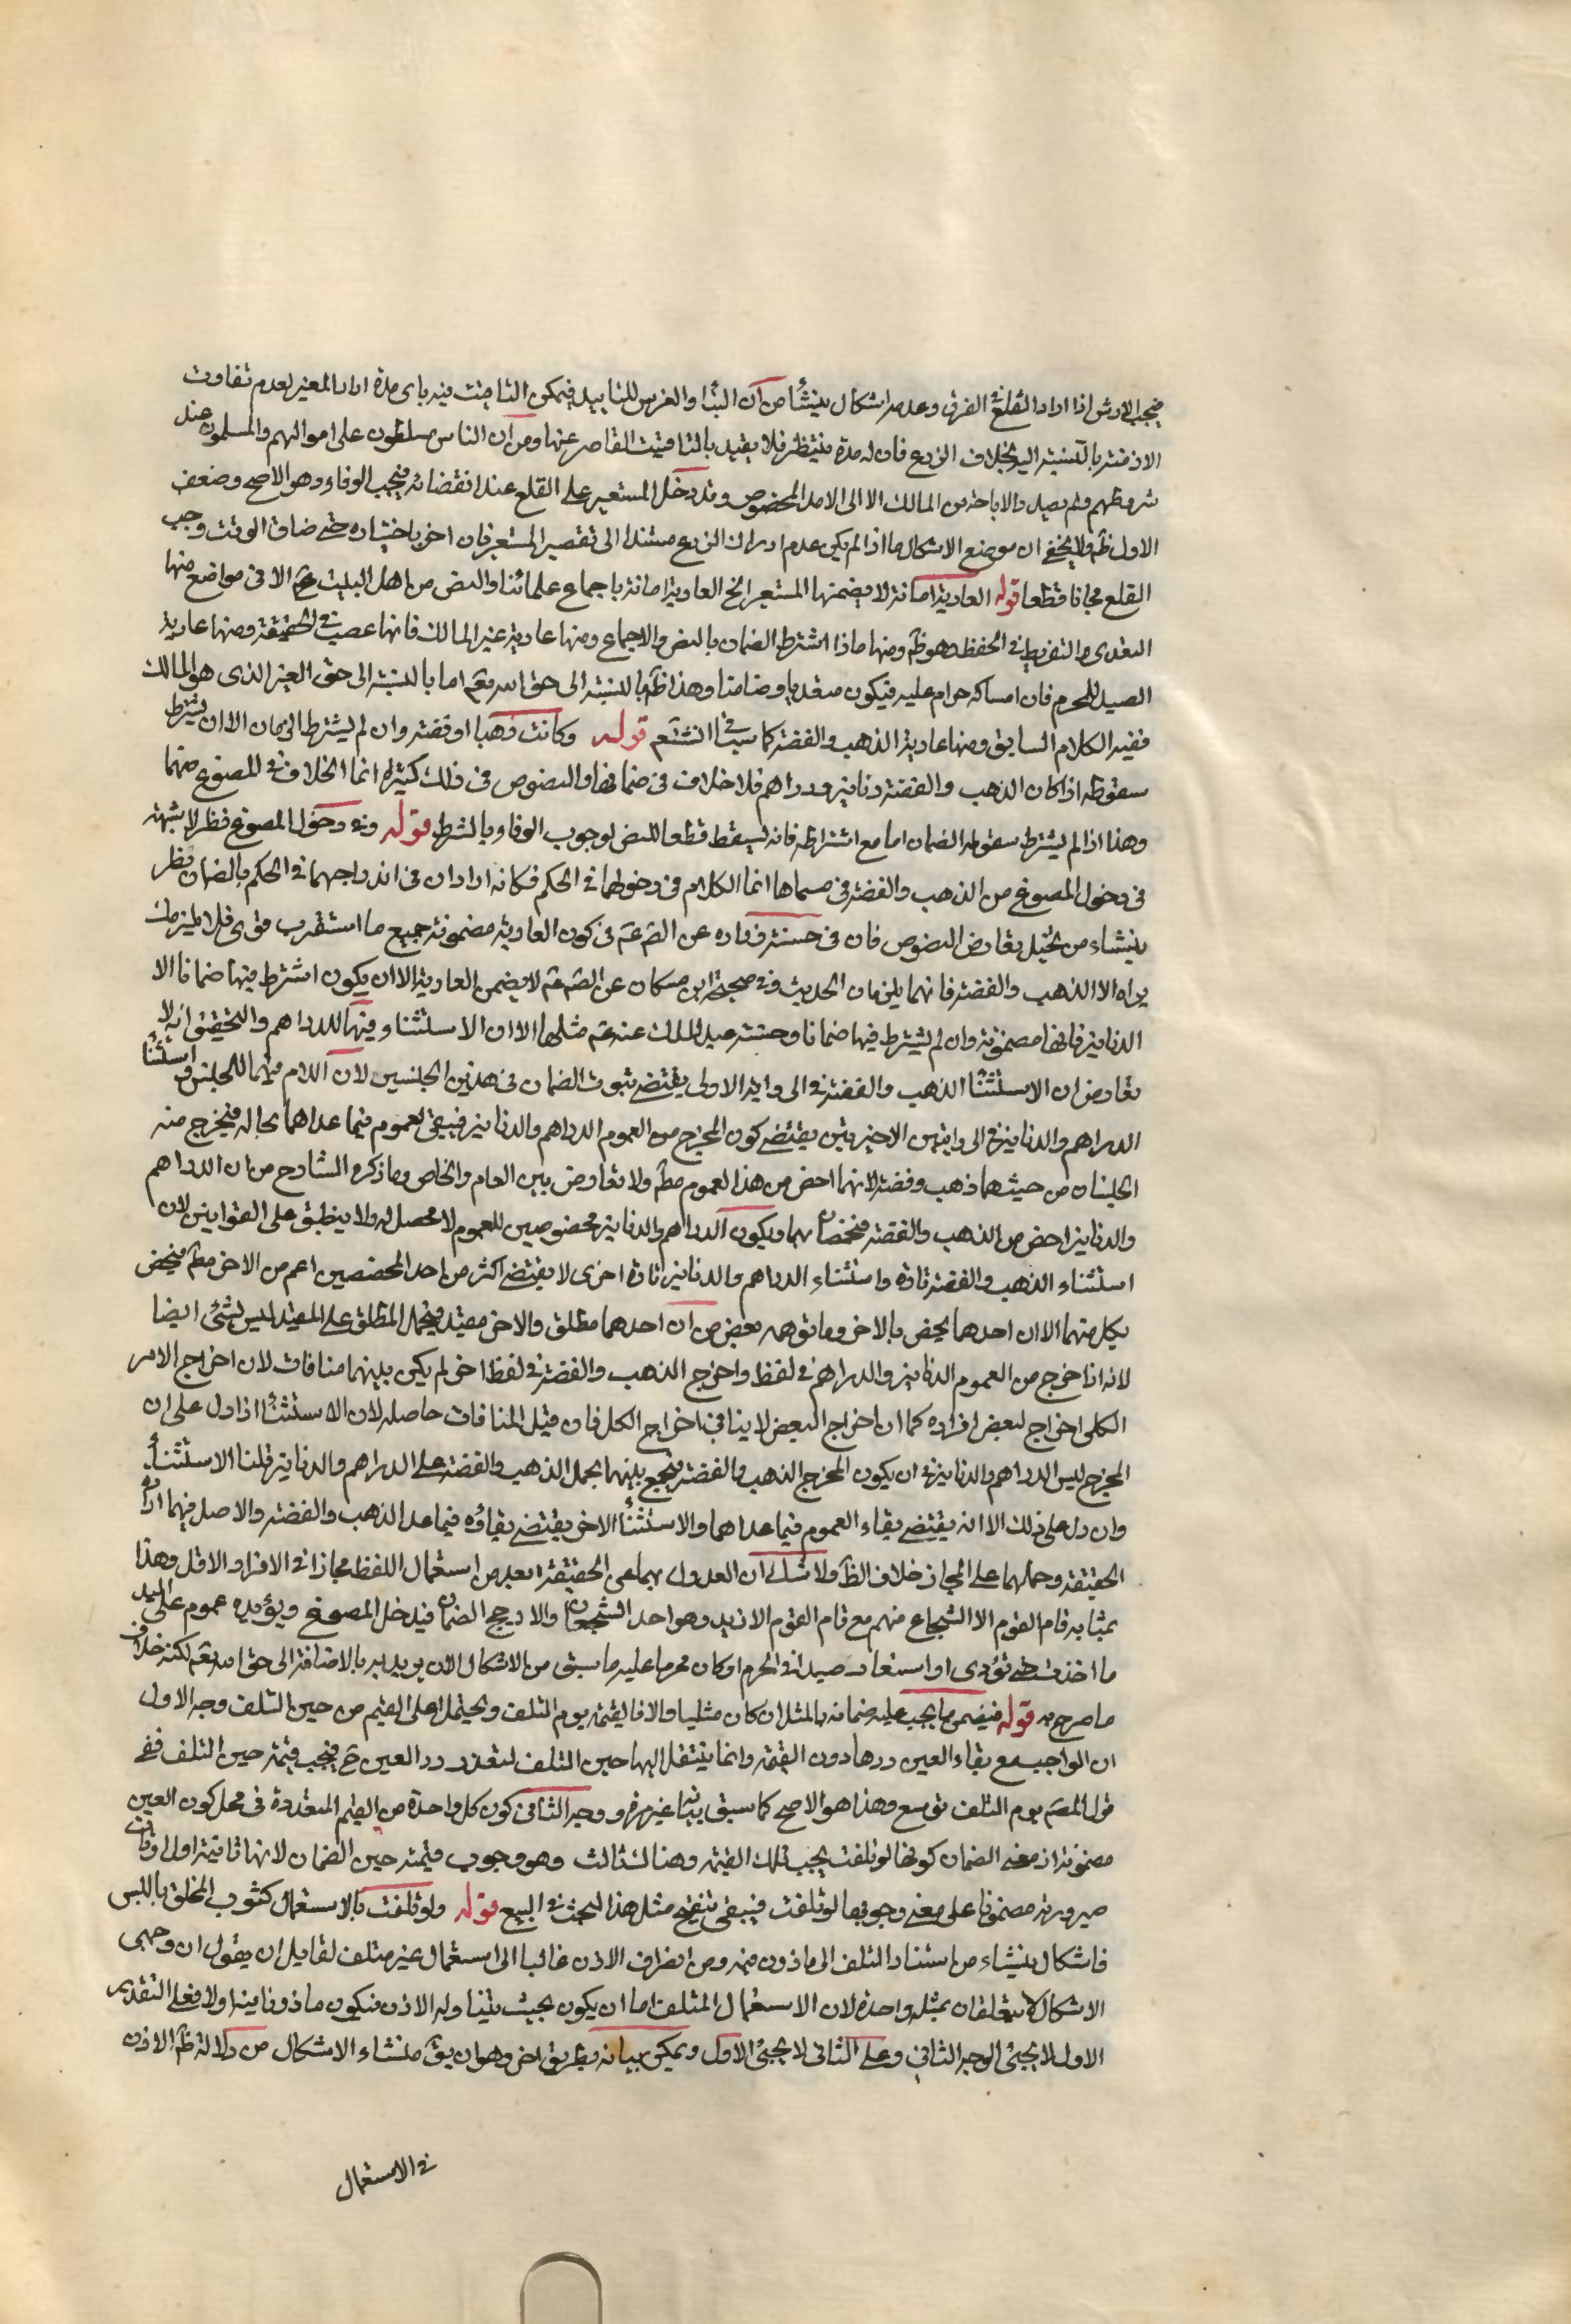 فيجب الارش اذا اراد القلع في الفرق وعدمه اشكال ينشأ من ان البناء والغرس للتابيد فيمكن التاقيت فيه باى مدة اراد المعير لعدم تفاوت
الازمنة بالنسبة اليه بخلاف الزرع فان له مدة تنتظر فلا يقيد بالتاقيت القاصر عنها ومن ان الناس مسلطون على اموالهم والمسلمون عند
شروطهم ولم يصدر الاباحة من المالك الا الى الامد المخصوص وقد دخل المستعير على القلع عند انقضائه فيجب الوفاء وهو الاصح وضعف
الاول ظ ولا يخفى ان موضع الاشكال ما اذا لم يكن عدم ادراك الزرع مستندا الى تقصير المستعير فان اخر باختياره حتى ضاق الوقت وجب
القلع مجانا قطعا قوله العارية امانة لا يضمنها المستعير الخ العارية امانة باجماع علمائنا والنص من اهل البيت ع الا فى مواضع منها
التعدى والتفريط فى الحفظ وهو ظ ومنها ما اذا اشترط الضمان بالنص والاجماع ومنها عارية غير المالك فانها غصب فى الحقيقة ومنها عارية
الصيد للمحرم فان امساكه حرام عليه فيكون متعديا وضامنا وهذا ظ بالنسبة الى حق الله تعم اما بالنسبة الى حق الغير الذى هو المالك
ففيه الكلام السابق ومنها عارية الذهب والفضة كما سياتى انشتعم قوله وكانت ذهبا او فضة وان لم يشترط الضمان الا ان يشترط
سقوطه اذا كان الذهب والفضة دنانير ودراهم فلا خلاف فى ضمانها والنصوص فى ذلك كثيرة انما الخلاف فى المصوغ منهما
وهذا اذا لم يشترط سقوط الضمان اما مع اشتراطه فانه يسقط قطعا للنص لوجوب الوفاء بالشرط قوله وفى دخول المصوغ نظر لا شبهة
فى دخول المصوغ من الذهب والفضة فى مسماها انما الكلام فى دخولهما فى الحكم فكانه اراد ان فى اندراجهما فى الحكم بالضمان نظر
ينشاء من تخيل تعارض النصوص فان فى حسنة زرارة عن الصم عم فى كون العارية مضمونة جميع ما استقرب فتوى فلا يلزمك
تواه الا الذهب والفضة فانهما يلزمان الحديث وفى صحيحة ابن مسكان عن الصم عم لا يضمن العارية الا ان يكون اشترط فيها ضمانا الا
الدنانير فانها مضمونة وان لم يشترط فيها ضمانا وحسنة عبد الملك عنه عم مثلها الا ان الاستثناء فيها للدراهم والتحقيق انه لا
تعارض ان الاستثناء الذهب والفضة فى الرواية الاولى يقتضى ثبوت الضمان فى هذين الجنسين لان اللام فيهما للجنس واستثناء
الدراهم والدنانير فى الروايتين الاخيرتين يقتضى كون المخرج من العموم الدراهم والدنانير فيبقى العموم فيما عداهما بحاله فيخرج منه
الجنسان من حيث هما ذهب وفضة لانهما اخص من هذا العموم مط ولا تعارض بين العام والخاص وما ذكره الشارح من ان الدراهم
والدنانير اخص من الذهب والفضة فتخصان بهما ويكون الدراهم والدنانير مخصوصين للعموم لا محصل له ولا ينطبق على القوانين لان
استثناء الذهب والفضة تارة واستثناء الدراهم والدنانير تارة اخرى لا يقتضى اكثر من احد المخصصين اعم من الاخر مط فيخص
بكل منهما الا ان احدهما يخص بالاخر وما توهمه بعض من ان احدهما مطلق والاخر مقيد فيحمل المطلق على المقيد ليس بشئ ايضا
لانه اذا خرج من العموم الدنانير والدراهم فى لفظ واخرج الذهب والفضة فى لفظ اخر لم يكن بينهما منافات لان اخراج الامر
الكلى اخراج لبعض افراده كما ان اخراج البعض لا ينافى اخراج الكل فان قيل المنافات حاصلة لان الاستثناء اذا دل على ان
المخرج ليس الدراهم والدنانير فى ان يكون المخرج الذهب والفضة فيجمع بينهما بحمل الذهب والفضة على الدراهم والدنانير قلنا الاستثناء
وان دل على ذلك الا انه يقتضى بقاء العموم فيما عداهما والاستثناء الاخر يقتضى بقاؤه فيما عدا الذهب والفضة والاصل فيهما ارادة
الحقيقة وحملهما على المجاز خلاف الظ ولا شك ان العدول بهما عن الحقيقة ابعد من استعمال اللفظ مجازا فى الافراد الاقل وهذا
بمثابه قام القوم الا الشجاع منهم مع قام القوم الا زيد وهو احد الشجعان والارجح الضمان فيدخل المصوغ ويؤيده عموم على اليد
ما اخذت حتى تؤدى او استعار صيدا فى الحرم او كان محرما عليه ما سبق من الاشكال الان يريد به بالاضافة الى حق الله تعم لكنه خلاف
ما صرح به قوله فيضمن ما يجب عليه ضمانه بالمثل ان كان مثليا والا فالقيمة يوم التلف ويحتمل اعلى القيم من حين التلف وجه الاول
ان الواجب مع بقاء العين ردها دون القيمة وانما ينتقل اليها حين التلف لتعذر رد العين ح فيجب قيمة حين التلف ففى
قول المصم يوم التلف توسع وهذا هو الاصح كما سبق بيانه غير مرة ووجه الثانى كون كل واحدة من القيم المتعددة فى محل كون العين
مضمونة اذ معنى الضمان كونها لو تلفت يجب تلك القيمة وهناك ثالث وهو وجوب قيمته حين الضمان لانها ثانية اول اوقات
صيرورته مضمونا على معنى وجوبها لو تلفت فينبقى تنقيح مثل هذا البحث فى البيع قوله ولو تلفت بالاستعمال كثوب المخلق باللبس
فاشكال ينشاء من استناد التلف الى ماذون فيه ومن انصراف الاذن غالبا الى استعمال غير متلف لقايل ان يقول ان وجهى
الاشكال لا يتعلقان بمثله واحدة لان الاستعمال المتلف اما ان يكون بحيث يتناوله الاذن فيكون ماذونا فيه او لا فعلى التقدير
الاول لا يجئ الوجه الثانى وعلى الثانى لا يجئ الاول ويمكن بيانه بطريق اخر وهو ان يق منشاء الاشكال من دلالة ظ الاذن
فى الاستعمال